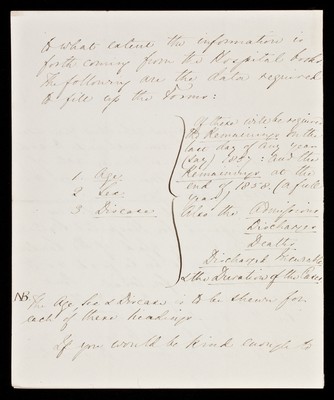 to what extent the information is
forth coming from the Hospital books
The following are the data required
to fill up the Forms:
1 Age
2 Sex
3 Disease
Of these will be required
the Remainings on the
last day of any year
(say) 1857: and the
Remainings at the
end of 1858. (a full
year)
Also the Admissions
Discharges
Deaths
Discharged Incurable
& the Duration of the Cases
NB
The Age, Sex & Disease is to be shewn for
each of these headings
If you would be kind enough to